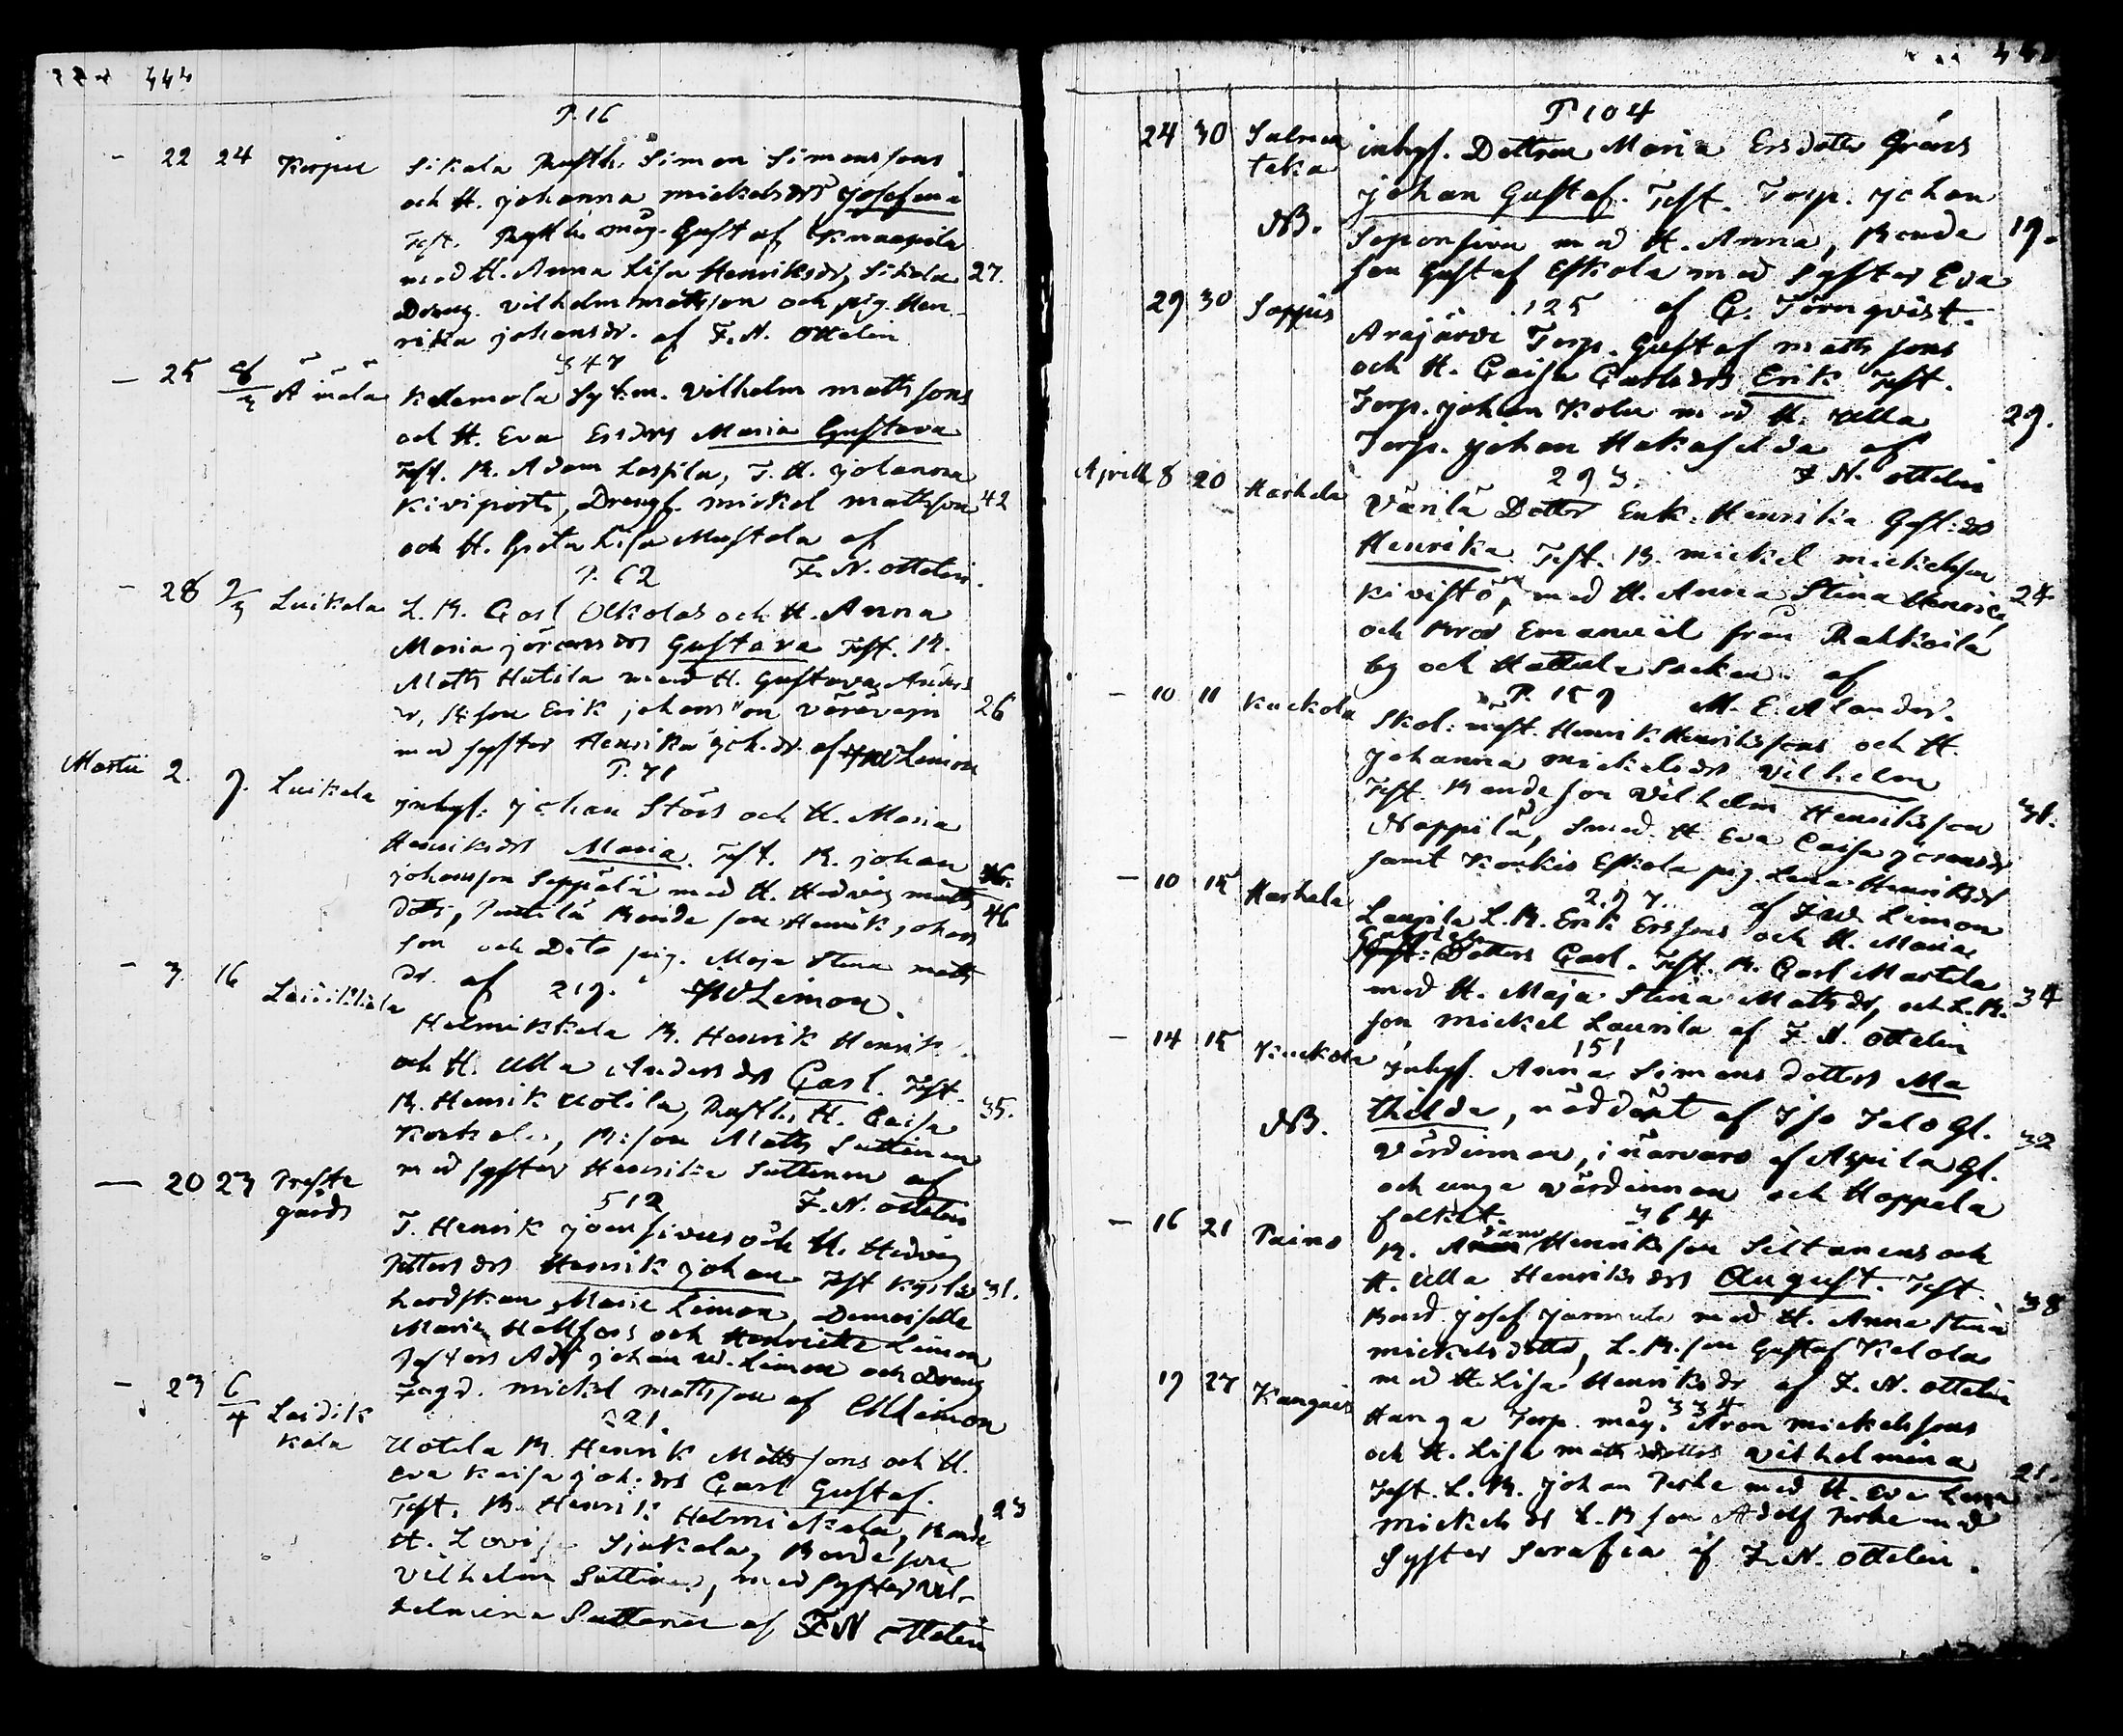 444
P. 16
- 22 24 Korpis Sikala Rusth. Simon Simonssons
och H. Johanna Mickelsdrs Josefina
Test. Rusth. måg Gustaf Knaapila
med H. Anna Lisa Henriksdr, Sikala 27.
Dreng. Vilhelm Mattsson och pig. Hen-
rika Johansdr. af F. N. Ottelin
347
- 25 8/3 Kelamola Sytn. Vilhelm Mattssons
och H. Eva Ersdrs Maria Gustava
Test. B. Adam Laspila, T. H. Johanna
Kiviporti, Drengs. Mickel Mattsson 42
och H. Greta Lisa Mustola af
P. 62 F. N. Ottelin.
- 28 2/3 Luikala L. B. Carl Ollkolas och H. Anna
Maria Jöransdrs Gustava Test. B.
Matts Hutila med H. Gustava Anders
dr, B. son Erik Johansson 26
med syster Henrika Joh. dr. af JW Limon
P. 71
Martii 2. 7. Luikala Inhys: Johan Störs och H. Maria
Henriksdrs Maria. Test. B. Johan
Johansson Seppälä med H. Hedvig Matts 46
dotr, Bonde son Henrik Johans
son och Dito pig. Maja Stina Matts
dr. af 217. JW Limon.
- 3. 16 Lauikkala Helmikkala B. Henrik Henriks.
och H. Ulla Anders drs Carl. Test.
B. Henrik Uotila, Rusth. H. Caisa 35.
B: son Matts Suttinen
med syster Henrika Suttinen af
512 F. N. Ottelin
- 20 23 Preste gårds T. Henrik och H. Hedvig
Petters drs Henrik Johan Test 31.
herdskan Maria Limon, Demoiselle
Maria Hellfors och Henriette Limon
Pastors Adj Johan W. Limon och Dreng
Mickel Mattsson af Limon
221.
- 23 6/4 Lauik kala Uotila B. Henrik Mattssons och H.
Eva Kaisa Joh: drs Carl Gustaf.
Test. B. Henrik Helmikkala, Bonde 23
H. Lovisa Sjukala, Bondeson
Vilhelm Suttinen, med syster Vil-
helmina Suttinen af F N Ottelin
P 104
24 30 Salmen taka inhys. Dottren Maria Ersdotter Gråns
Johan Gustaf. Test. Torp. Johan
NB. med H. Anna, Bonde 19.
son Gustaf Eskola med Syster Eva
125 af C. Törnqvist.
29 30 Sappis Arajärvi Torp. Gustaf Matts sons
och H. Caisa Carlsdrs Erik Test.
Torp. Johan Kolu med H. Ulla 29.
Torp. Johan Hakasilda af
293. F. N. Ottelin
Aprill 8 20 Harhala Vänilä Dotter Enk. Henrika Gust: drs
Henrika Test. B. Mickel Mickelsson
Kivistö, med H. Anna Stina Henrics 24
och Bror Emanuel från Rahkoila
by och Hattula Socken. af
P. 157 M. E. Alander.
- 10 11 Kuckola Skol: mäst. Henrik Henrikssons och H.
Johanna Mickelsdrs Vilhelm
Test. Bondeson Vilhelm Henriksson 31.
Nappila, Smed. H. Eva Caisa Jöransdr
samt Korkis Eskola pig. Lena Henriksdr
297. af JW Limon
- 10 15 Harhala Laurila L. B. Erik Erssons och H. Maria
Gabriels Dotters Carl. Test. B. Carl Martila
med H. Maja Stina Matts dr, och L. B. 34
son Mickel Laurila af F. N. Ottelin
151
- 14 15 Kuckola Inhys. Anna Simons dotters Ma
NB. thilda, nöddöpt af Iso Jelo Gl. 32
värdinnan, i närvaro af Aspila Gl.
och unga värdinnan och Hoppala
folket. 364
- 16 21 Paino B. Adam Henriksson Siltanens och
H. Ulla Henriks drs August. Test. 38
Bond. Josef med H. Anna Stina
Mickelsdotter, L. B. son Gustaf Kelolas
med H. Lisa Henriksdr af F. N. Ottelin
334
19 27 Kangais Hanga Torp. måg. Aron Mickelssons
och H. Lisa Mattsdotters Vilhelmina 21.
Test. L. B. Johan Perhe med H. Eva Lena
Mickels dr L. B son Adolf Perhe med
Syster Serafia af F. N. Ottelin.